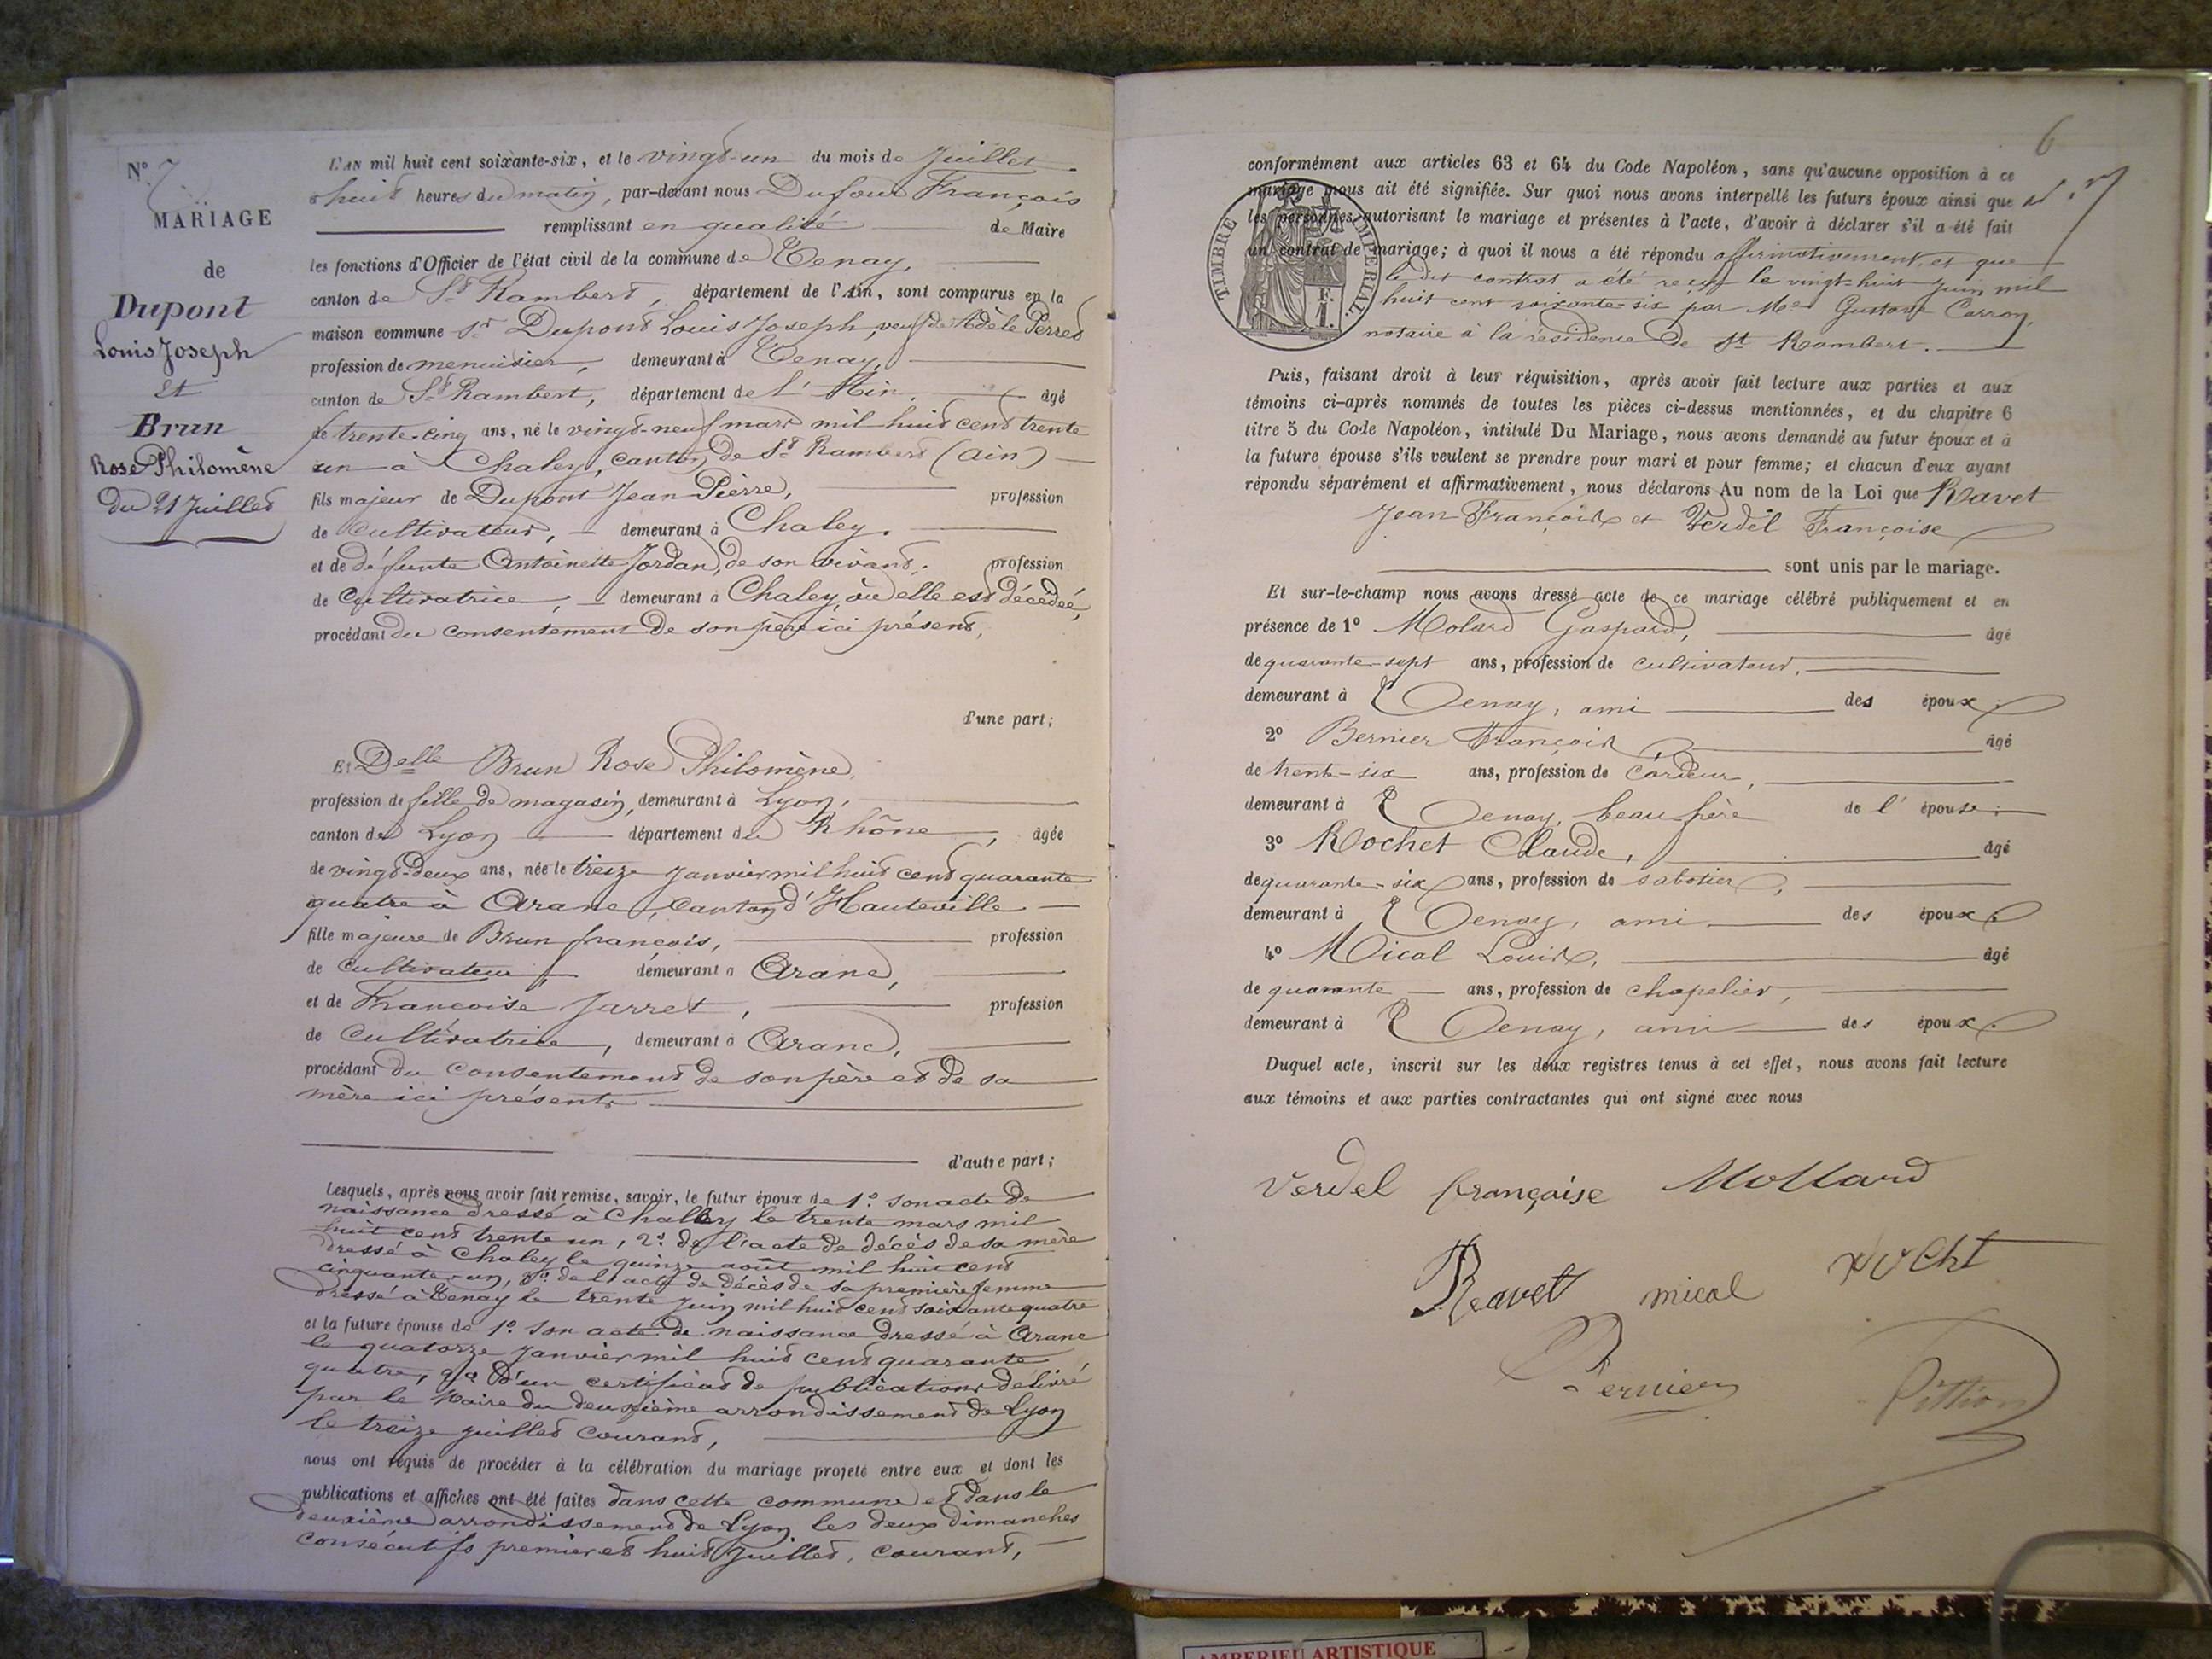 N.º 7
MARIAGE
de
Dupont
Louis Joseph
et
Brun
Rose Philomène
du 21 Juillet
L'AN mil huit cent soixante-six, et le vingt-un du mois de Juillet
à huit heures du matin, par-devant nous Dufour François
remplissant en qualité de Maire
les fonctions d'Officier de l'état civil de la commune de Tenay,
canton de St Rambert, département de l'Ain, sont comparus en la
maison commune Sr Dupont Louis Joseph, veuf de Adèle Perret
profession de menuisier, demeurant à Tenay,
canton de St Rambert, département de l'Ain. âgé
de trente-cinq ans, né le vingt-neuf mars mil huit cent trente
un à Chaley, canton de St Rambert (Ain)
fils majeur de Dupont Jean Pierre, profession
de Cultivateur, demeurant à Chaley.
et de défunte Antoinette Jordan, de son vivant, profession
de Cultivatrice, demeurant à Chaley, où elle est décédée,
procédant du consentement de son père ici présent,
d'une part;
Et Delle Brun Rose Philomène,
profession de fille de magasin, demeurant à Lyon,
canton de Lyon département du Rhône, âgée
de vingt-deux ans, née le treize Janvier mil huit cent quarante
quatre à Aranc, Canton d'Hauteville
fille majeure de Brun françois, profession
de Cultivateur, demeurant à Aranc,
et de Françoise Jarret, profession
de Cultivatrice, demeurant à Aranc,
procédant du consentement de son père et de sa
mère ici présents
d'autre part;
Lesquels, après nous avoir fait remise, savoir, le futur époux de 1º son acte de
naissance dressé à Challey le trente mars mil
huit cent trente un, 2º de l'acte de décès de sa mère
dressé à Chaley le quinze août mil huit cent
cinquante-un, 3º de l'acte de décès de sa première femme
dressé à Tenay le trente Juin mil huit cent soixante quatre
et la future épouse de 1º son acte de naissance dressé à Aranc
le quatorze Janvier mil huit cent quarante
quatre, 2º d'un certificat de publications délivré
par le Maire du deuxième arrondissement de Lyon
le treize juillet courant,
nous ont requis de procéder à la célébration du mariage projeté entre eux et dont les
publications et affiches ont été faites dans cette commune et dans le
deuxième arrondissement de Lyon les deux dimanches
consécutifs premier et huit Juillet, courant,
6
conformément aux articles 63 et 64 du Code Napoléon, sans qu'aucune opposition à ce
mariage nous ait été signifiée. Sur quoi nous avons interpellé les futurs époux ainsi que
les personnes autorisant le mariage et présentes à l'acte, d'avoir à déclarer s'il a été fait
un contrat de mariage; à quoi il nous a été répondu affirmativement et que
le dit contrat a été reçu le vingt-huit Juin mil
huit cent soixante-six par Me Gustave Carron,
notaire à la résidence de St Rambert.
TIMBRE IMPÉRIAL
F.
1.
Puis, faisant droit à leur réquisition, après avoir fait lecture aux parties et aux
témoins ci-après nommés de toutes les pièces ci-dessus mentionnées, et du chapitre 6
titre 5 du Code Napoléon, intitulé Du Mariage, nous avons demandé au futur époux et à
la future épouse s'ils veulent se prendre pour mari et pour femme; et chacun d'eux ayant
répondu séparément et affirmativement, nous déclarons Au nom de la Loi que Ravet
Jean François et Verdel Françoise
sont unis par le mariage.
Et sur-le-champ nous avons dressé acte de ce mariage célébré publiquement et en
présence de 1º Molard Gaspard, âgé
de quarante-sept ans, profession de cultivateur,
demeurant à Tenay, ami des époux;
2º Bernier François, âgé
de trente-six ans, profession de Cardeur,
demeurant à Tenay, beau frère de l'épouse;
3º Rochet Claude, âgé
de quarante-six ans, profession de sabotier,
demeurant à Tenay, ami des époux;
4º Mical Louis, âgé
de quarante ans, profession de chapelier,
demeurant à Tenay, ami des époux.
Duquel acte, inscrit sur les deux registres tenus à cet effet, nous avons fait lecture
aux témoins et aux parties contractantes qui ont signé avec nous
Verdel françoise Mollard
Ravet mical
Bernier Pittion
AMBERIEU ARTISTIQUE